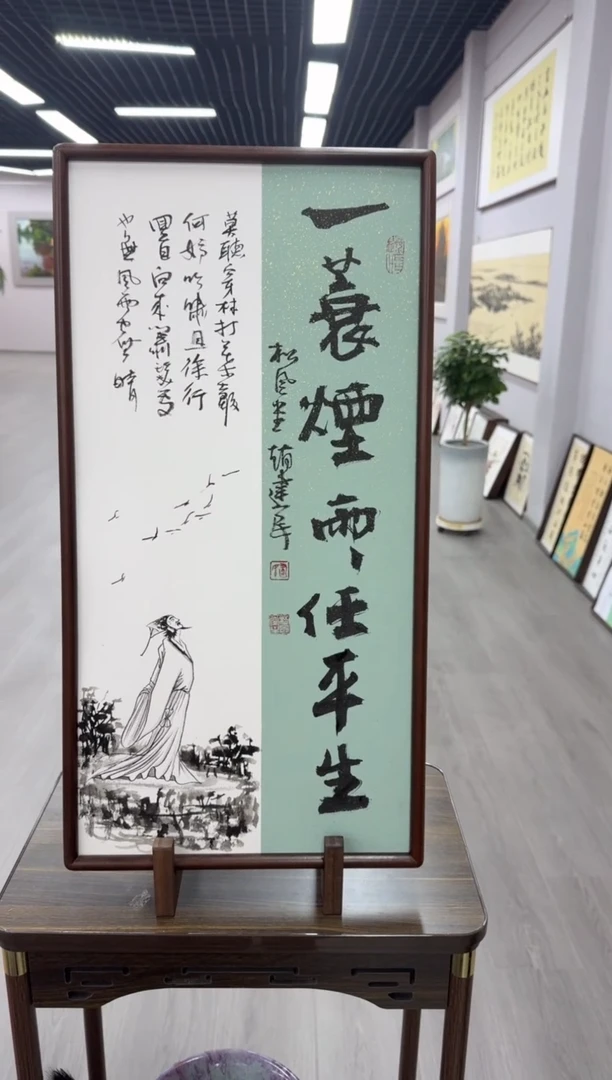 一蓑煙雨任平生
松风堂 趙建
莫聽穿林打葉聲
何妨吟嘯且徐行
回首向來蕭瑟處
也無風雨也無晴